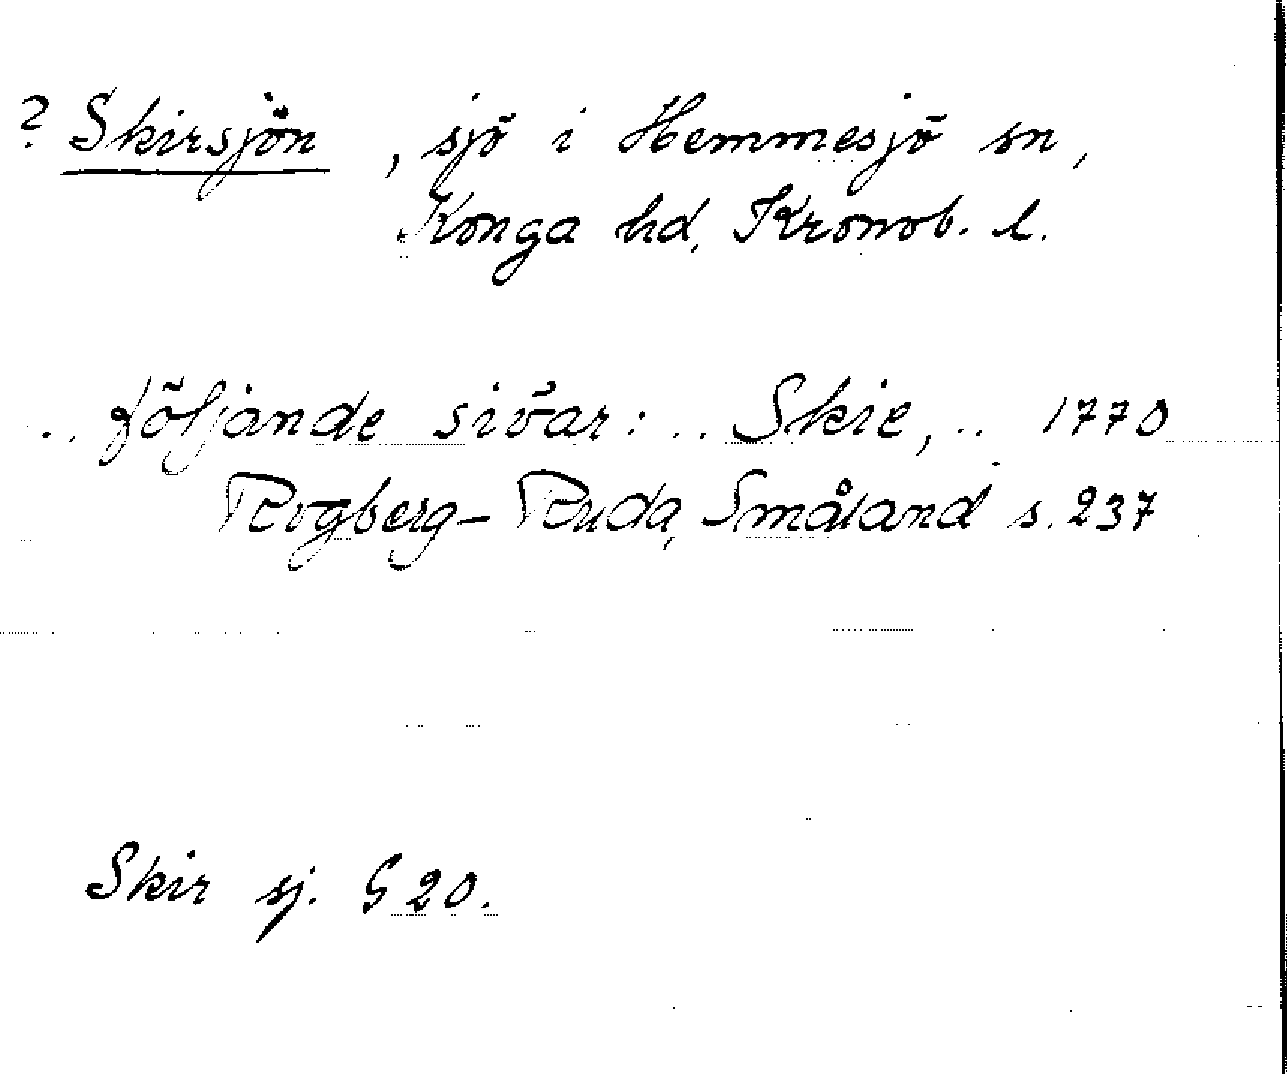 ? Skirsjön, sjö i Hemmesjö sn,
Konga hd, Kronob. l.
.. följande siöar: .. Skie, .. 1770
Rogberg-Ruda, Småland s. 237
Skir sj. G 20.